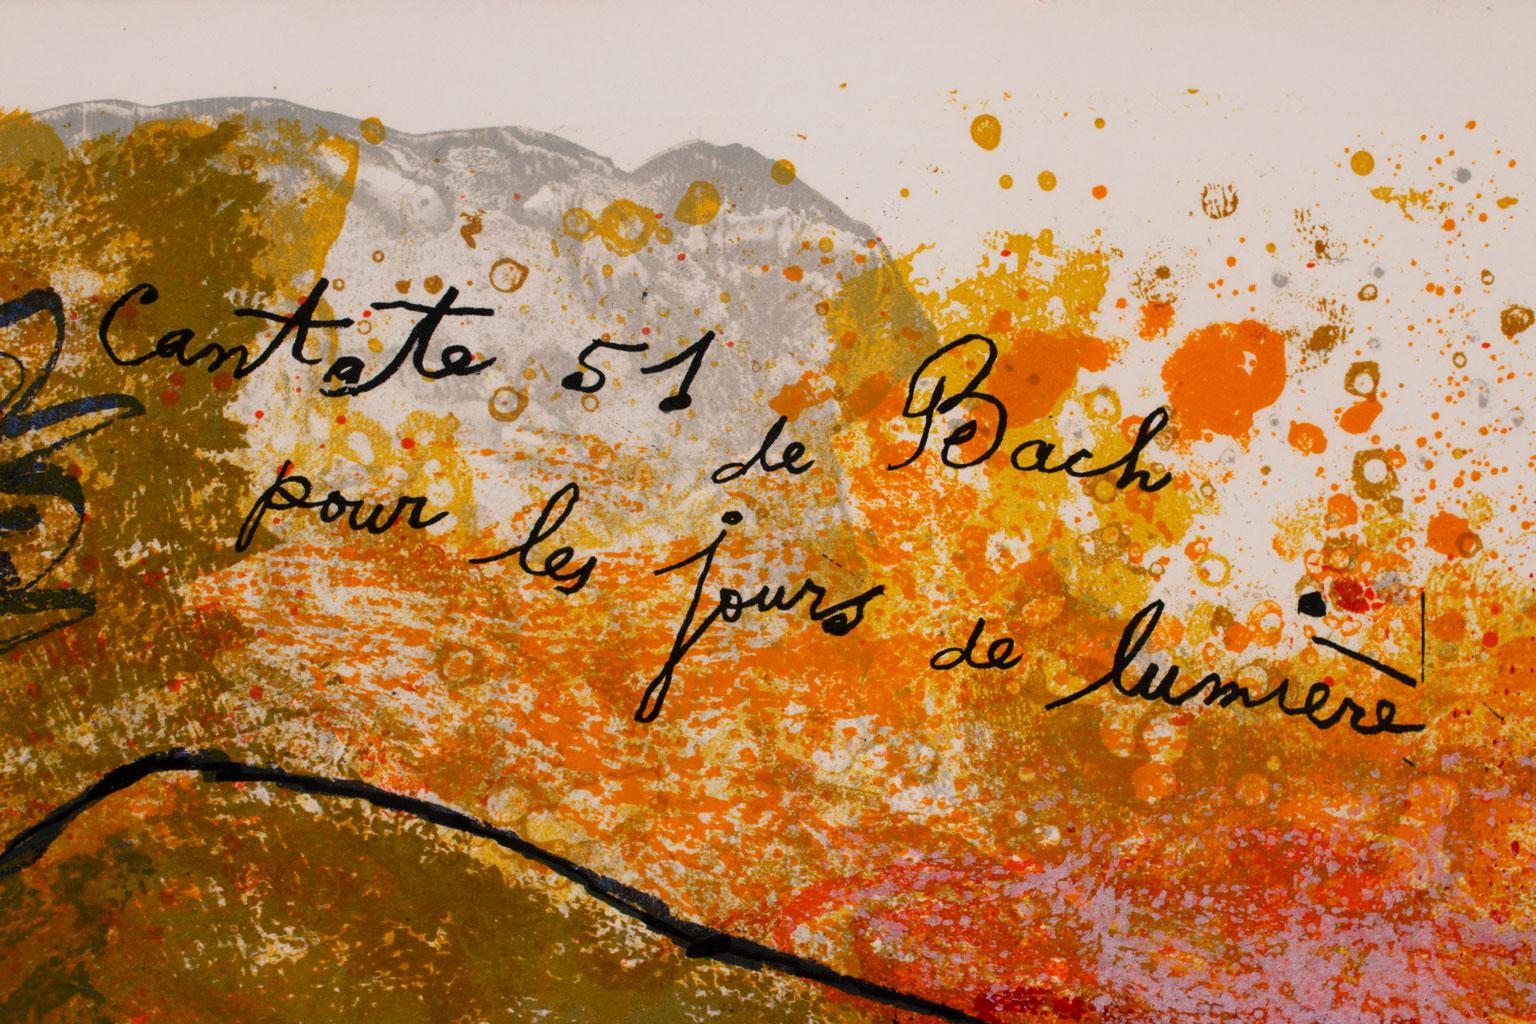 Cantate 51
de Bach
pour les jours
de lumière